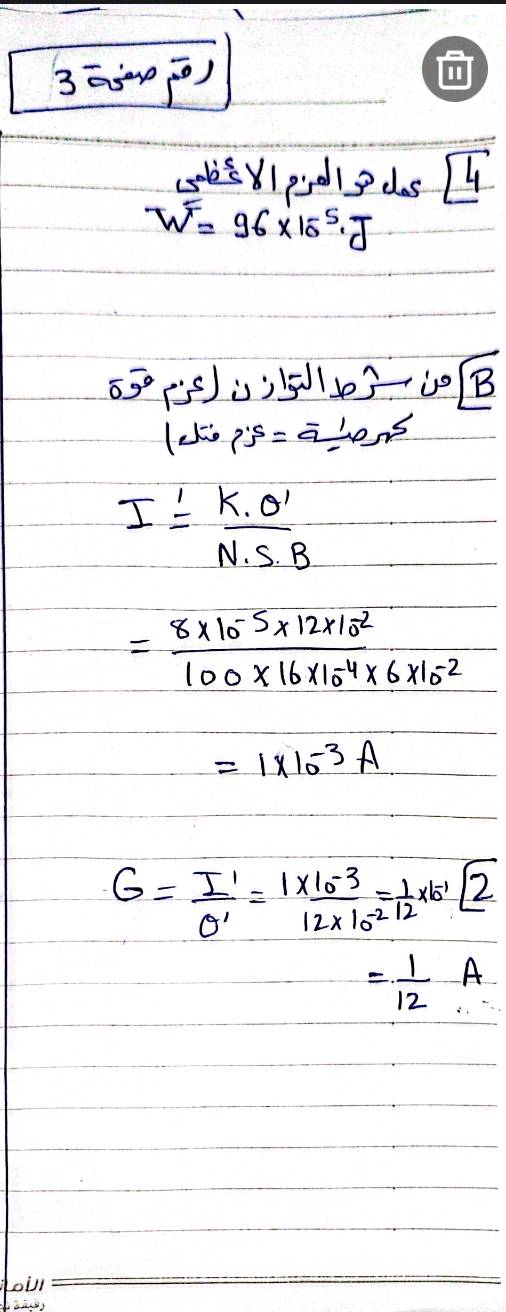 رقم صفحة 3
4 عمل هو العزم الاعظمي
W = 96 × 10⁻⁵ . J
B من شرط التوازن (عزم قوة
كهرطيسية = عزم فتل)
I' = K . θ' / N . S . B
= 8 × 10⁻⁵ × 12 × 10⁻² / 100 × 16 × 10⁻⁴ × 6 × 10⁻²
= 1 × 10⁻³ A
2 G = I' / θ' = 1 × 10⁻³ / 12 × 10⁻² = 1/12 × 10⁻¹
= 1/12 A